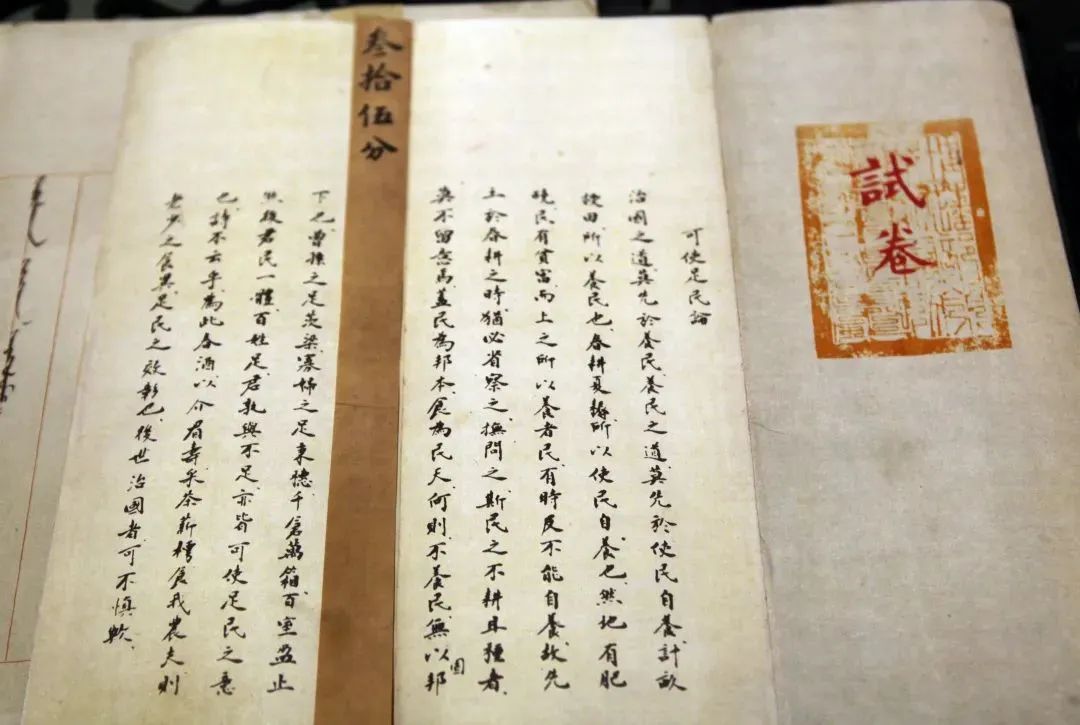 試卷
可使足民論
治國之道莫先於養民養民之道莫先於使民自養計畝
授田所以養民也春耕夏耨所以使民自養也然地有肥
磽民有貧富而上之所以養者民有時及不能自養故先
王於春耕之時猶必省察之撫問之斯民之不耕且種者
莫不留意焉蓋民為邦本食為民天何則不養民無以邦
固
叁拾伍分
下也曾孫之足茨梁寡婦之足束穗千倉萬箱百室盈止
然後君民一體百姓足君孰與不足亦皆可使足民之意
也詩不云乎為此春酒以介眉壽采荼薪樗食我農夫則
老少之食與足民之效彰也後世治國者可不慎歟